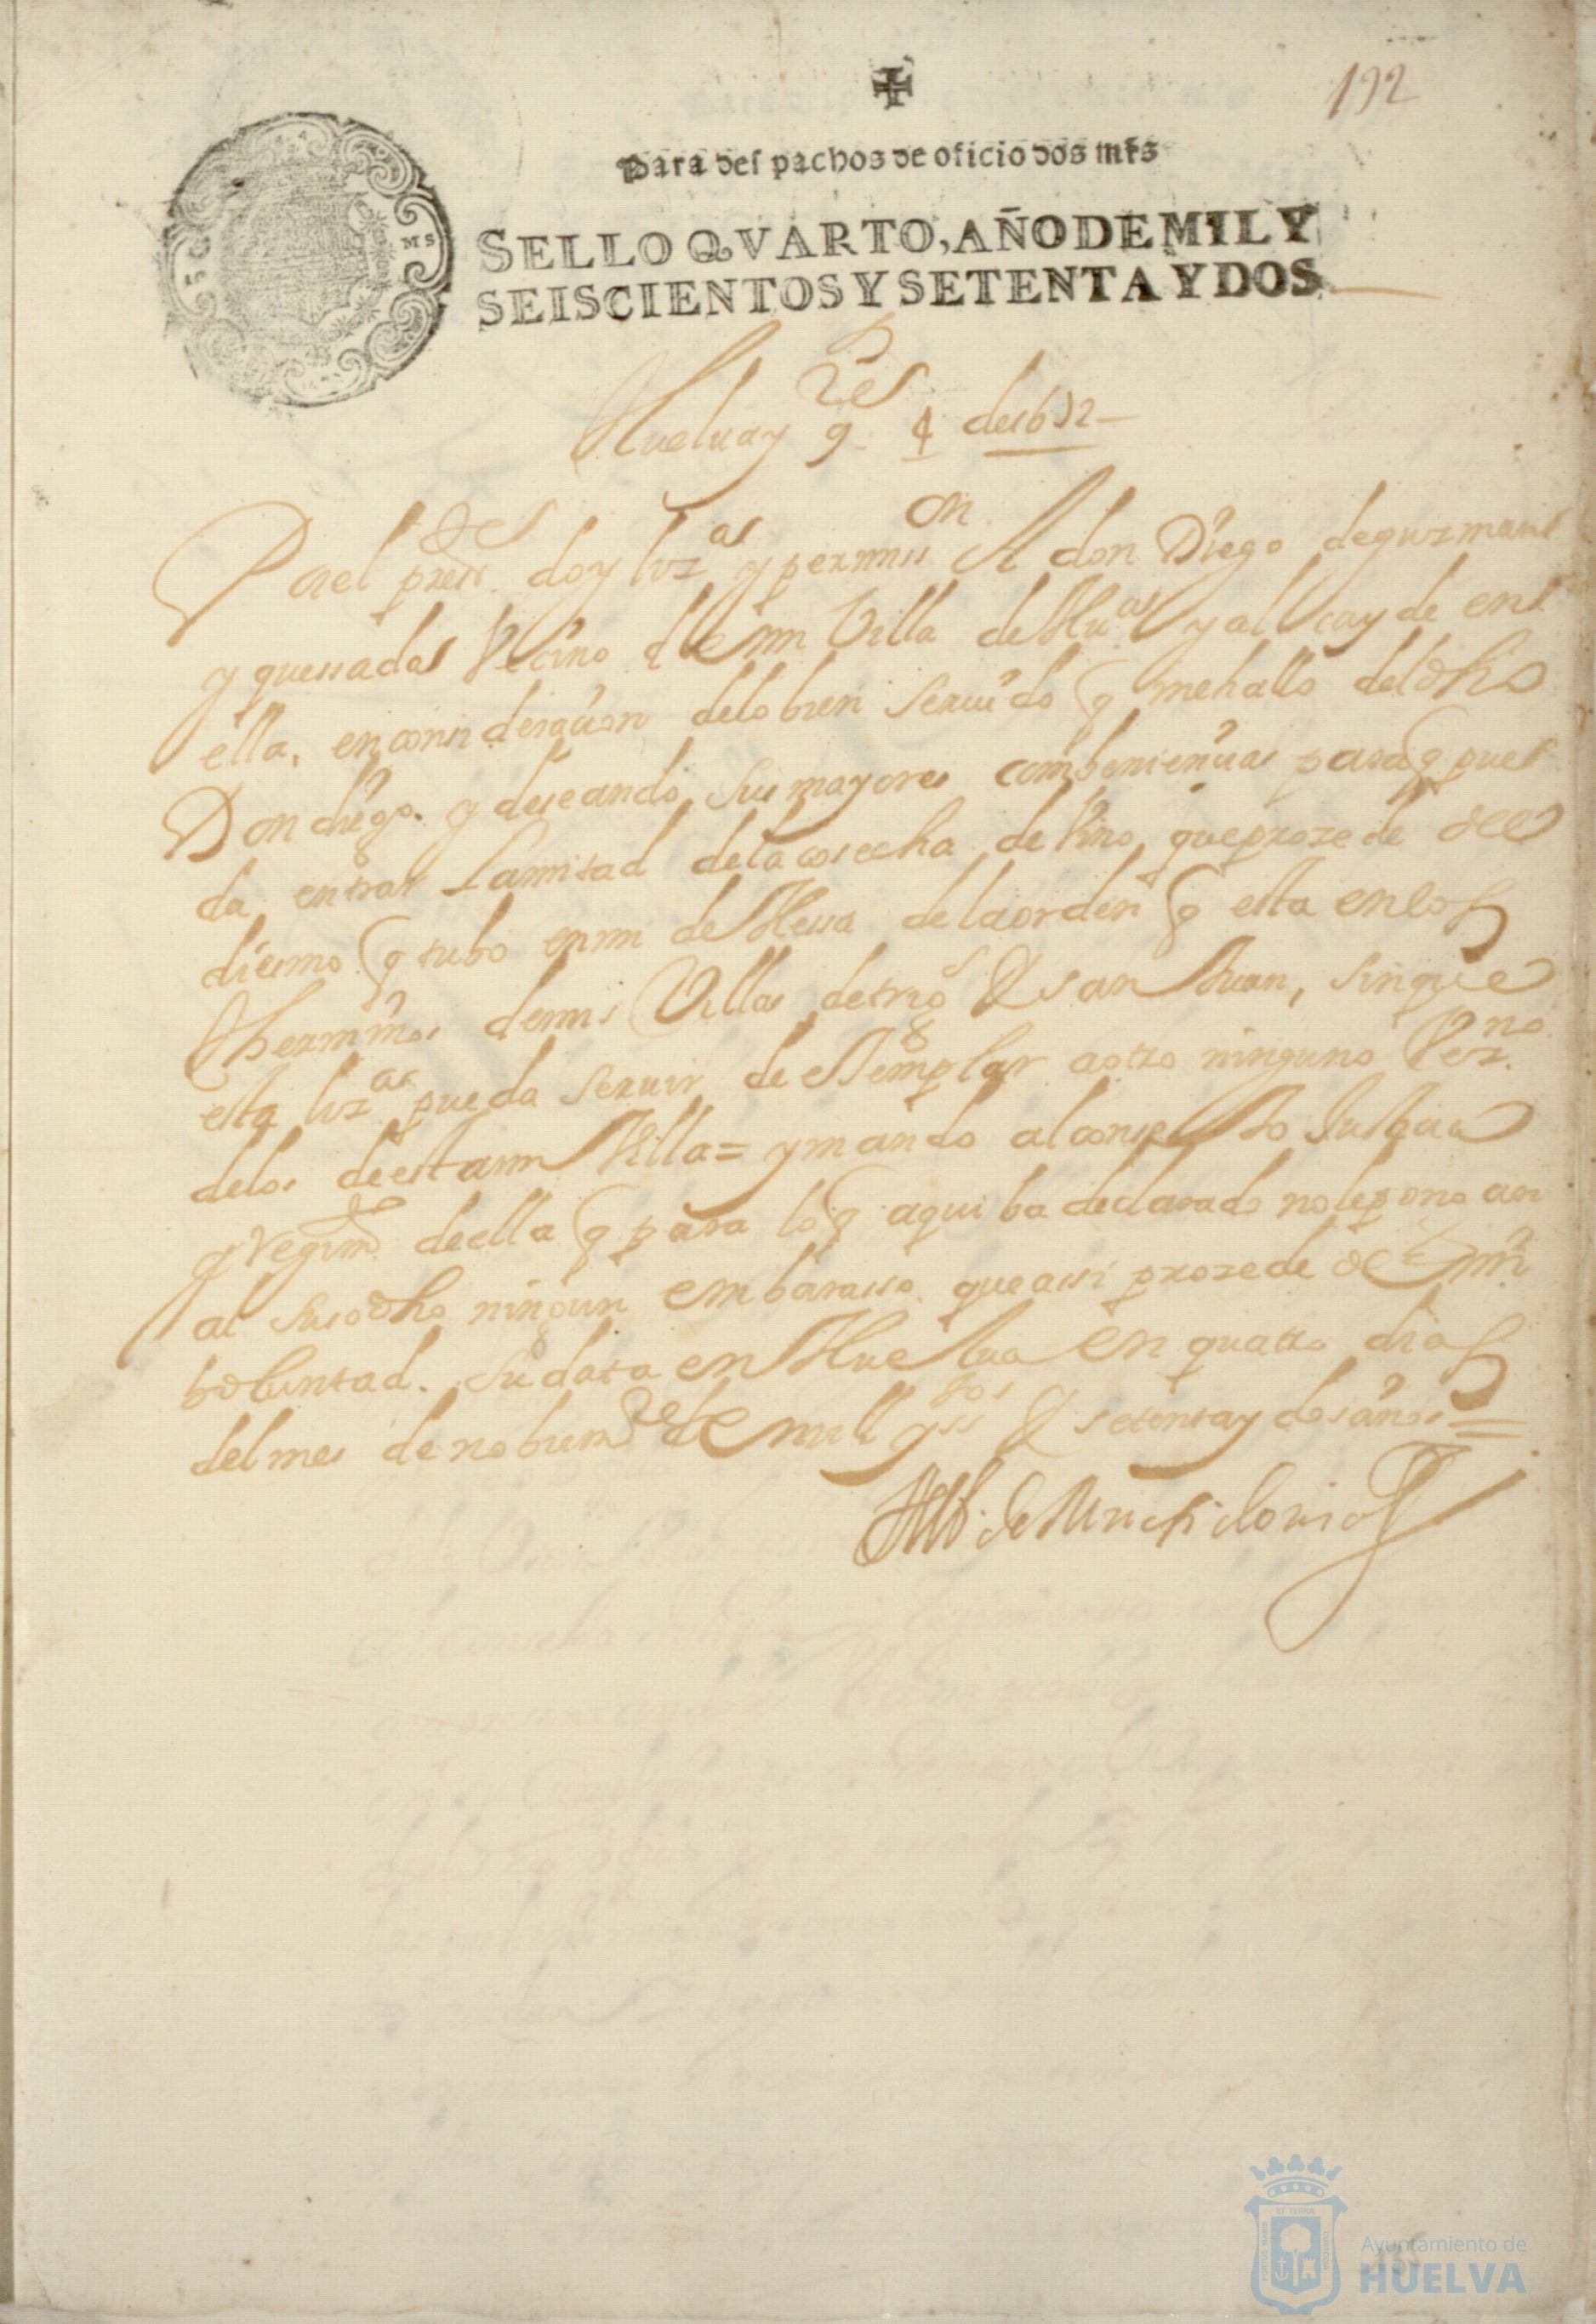 192
Para despachos de oficio dos mrs
SELLO QVARTO, AÑO DE MIL Y
SEISCIENTOS Y SETENTA Y DOS
MS
Huelua y 9res 4 de 1672
Por el presde doy lizas y permison A don Diego de guzman
y quessada Vecino de mi Villa de Hua y alcayde en
ella, en consideracion delo bien seruido q me hallo del dho
Don diego. y deseando sus mayores combeniencias para q pue
da entrar la mitad de la cosecha de vino, que prozede del
diesmo q tubo en mi dehessa de la orden q esta en los
thermios de mis Villas de trigs & san Juan, sin que
esta liza pueda seruir de exemplar a otro ninguno Vezno
delos de esta mi Villa = y mando al consejo Justicia
y regimto de ella q para lo q aqui ba declarado no le pongan
al susodho ningun embarasso que assi prozede de mi
boluntad. Su data en Huelua en quatro dias
del mes de nobiemre de mill y sstos & setenta y dos años =
Ayuntamiento de
HUELVA